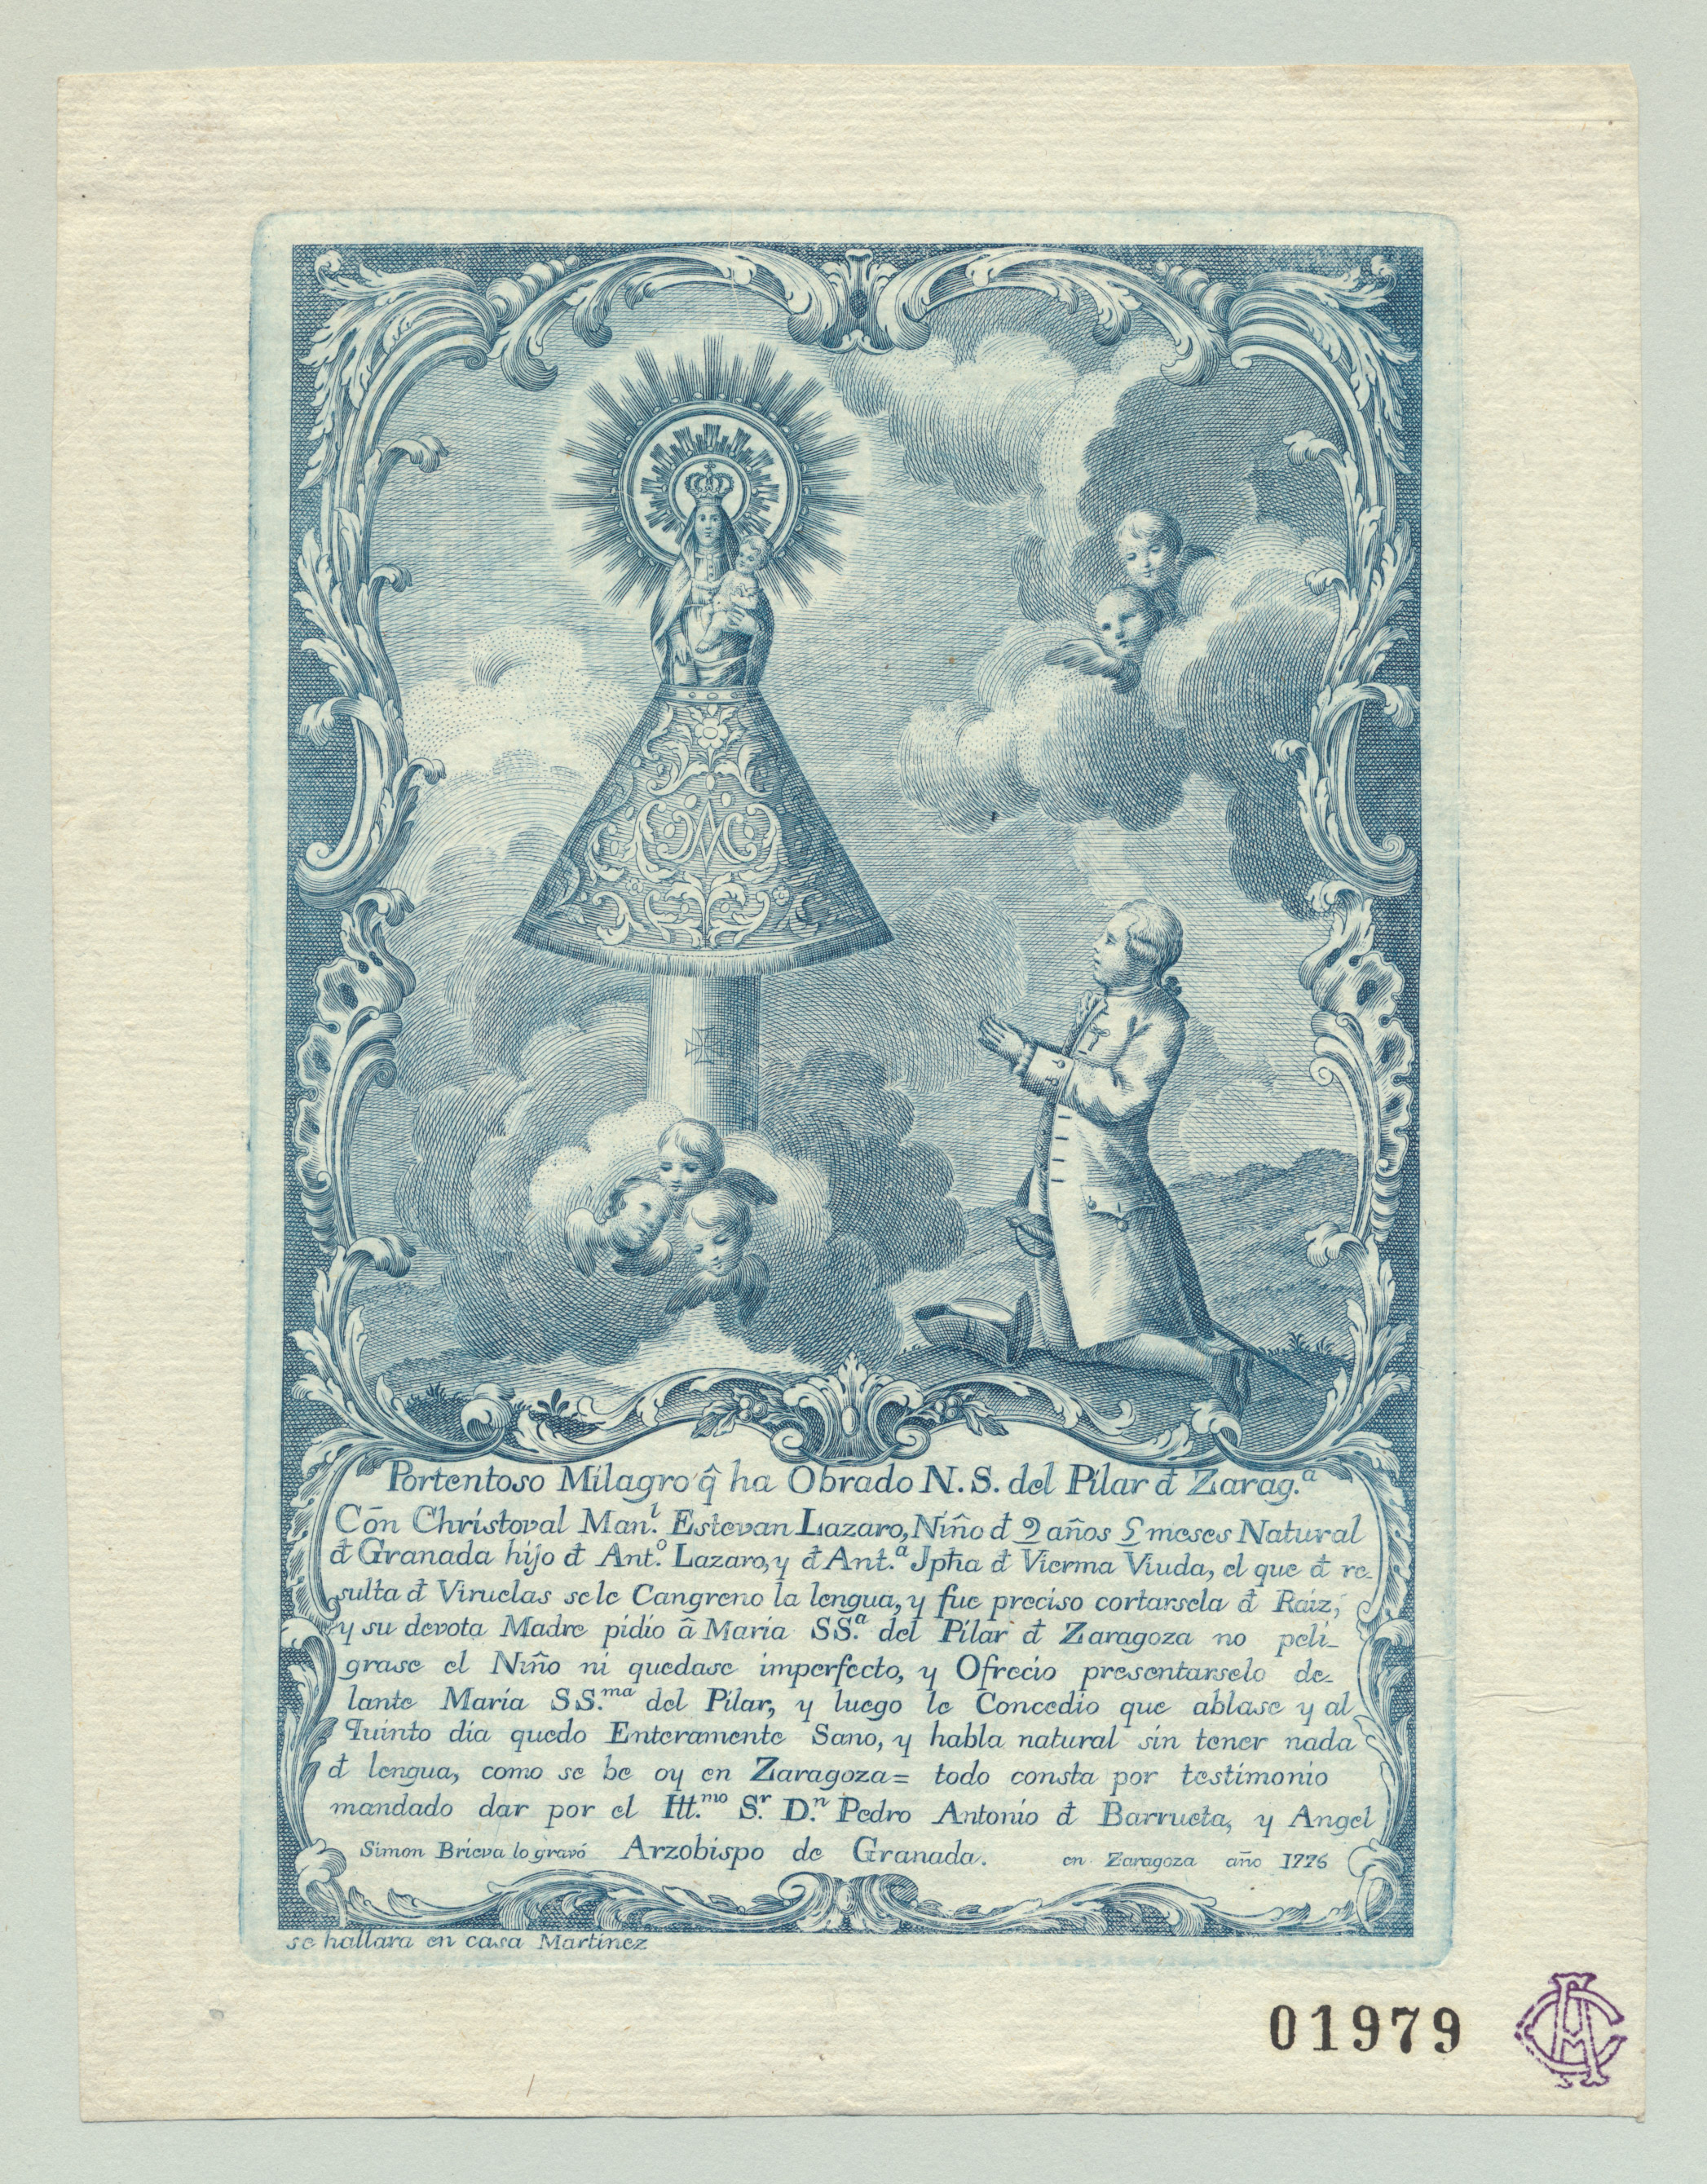 Portentoso Milagro q̂ ha Obrado N.S. del Pilar đ Zarag.ª
Cōn Christoval Man.l Estevan Lazaro, Niño đ 9 años 5 meses Natural
đ Granada hijo đ Ant.º Lazaro, y đ Ant.ª Jpħa đ Vierma Viuda, el que đ re-
sulta đ Viruelas sele Cangreno la lengua, y fue preciso cortarsela đ Raiz,
y su devota Madre pidio â Maria SS.ª del Pilar đ Zaragoza no peli-
grase el Niño ni quedase imperfecto, y Ofrecio presentarselo de-
lante Maria SS.ma del Pilar, y luego le Concedio que ablase y al
Quinto dia quedo Enteramente Sano, y habla natural sin tener nada
đ lengua, como se be oy en Zaragoza= todo consta por testimonio
mandado dar por el Itt.mo S.r D.n Pedro Antonio đ Barrueta, y Angel
Simon Brieva lo gravó Arzobispo de Granada. en Zaragoza año 1776
se hallara en casa Martinez
01979